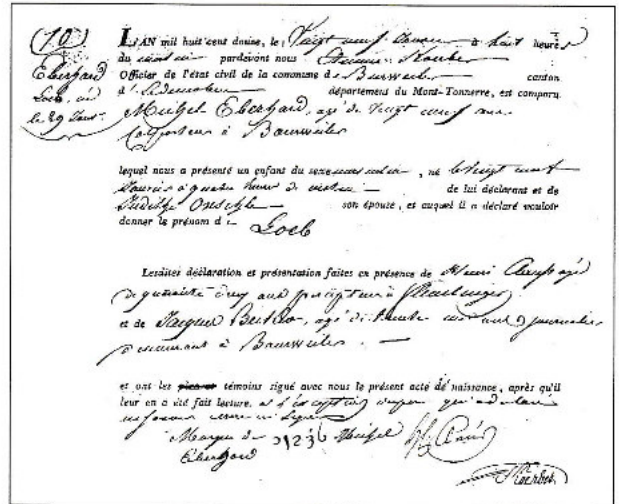 (10)
Eberhard
Loeb, né
le 29 Janv.
L'AN mil huit cent douze, le Vingt neuf Janvier à huit heures
du matin pardevant nous
Officier de l'état civil de la commune de Baurweiler canton
d' département du Mont-Tonnerre, est comparu
Michel Eberhard, agé de Vingt neuf ans
Colporteur à Baurweiler
lequel nous a présenté un enfant du sexe masculin, né le vingt neuf
Janvier à quatre heures de matin de lui déclarant et de
Judithe son épouse, et auquel il a déclaré vouloir
donner le prénom de Loeb
Lesdites déclaration et présentation faites en présence de Henri agé
de quarante cinq ans percepteur à
et de Jacques agé de trente ans journalier
demeurant à Baurweiler.
et ont les témoins signé avec nous le présent acte de naissance, après qu'il
leur en a été fait lecture, à l'exception du père qui a déclaré
Marque de Michel
Eberhard